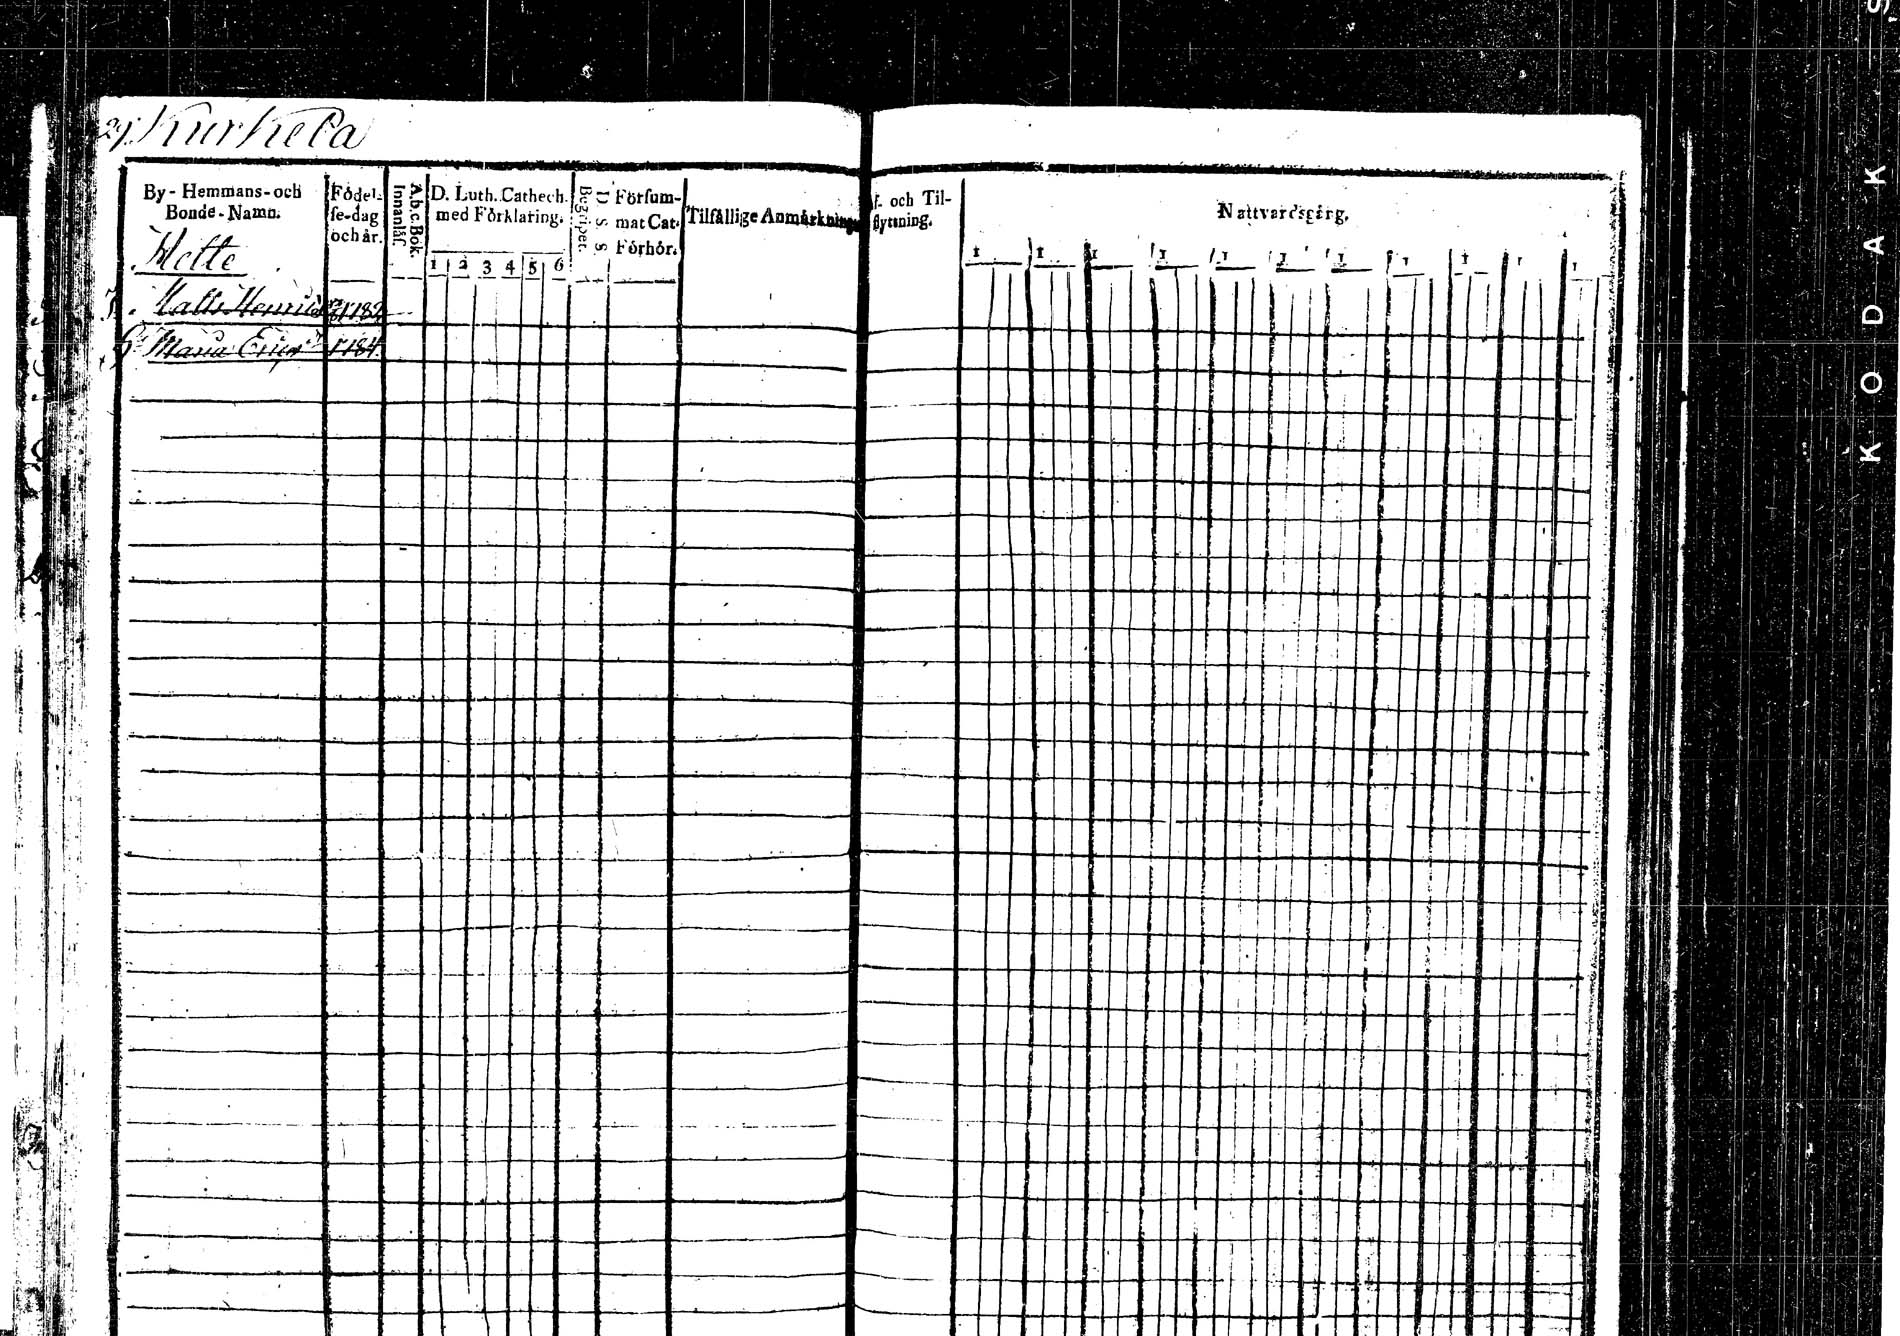 Kurkela
By - Hemmans - och
Bonde - Namn.
Födel-
se-dag
och år.
A.b.c.Bok.
Innanläs.
D. Luth. Cathech.
med Förklaring.
1 2 3 4 5 6
Begripet.
D. S. S.
Försum-
mat Cat.
Förhör.
Tilfällige Anmärkning
f. och Til-
flyttning.
Nattvardsgång.
1 1 1 1 1 1 1 1 1 1 1
Matts Henrics
Maria Ericsd 184
KODAK S